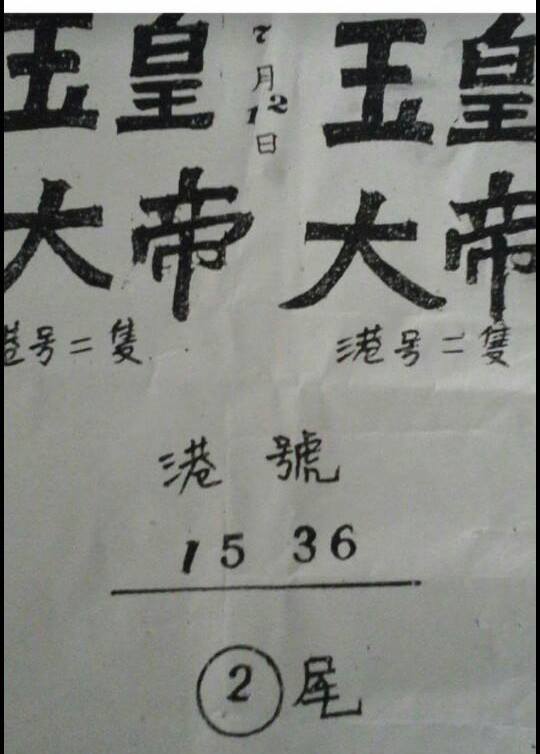 玉皇
大帝
港号二隻
7月12日
玉皇
大帝
港号二隻
港號
15 36
2尾